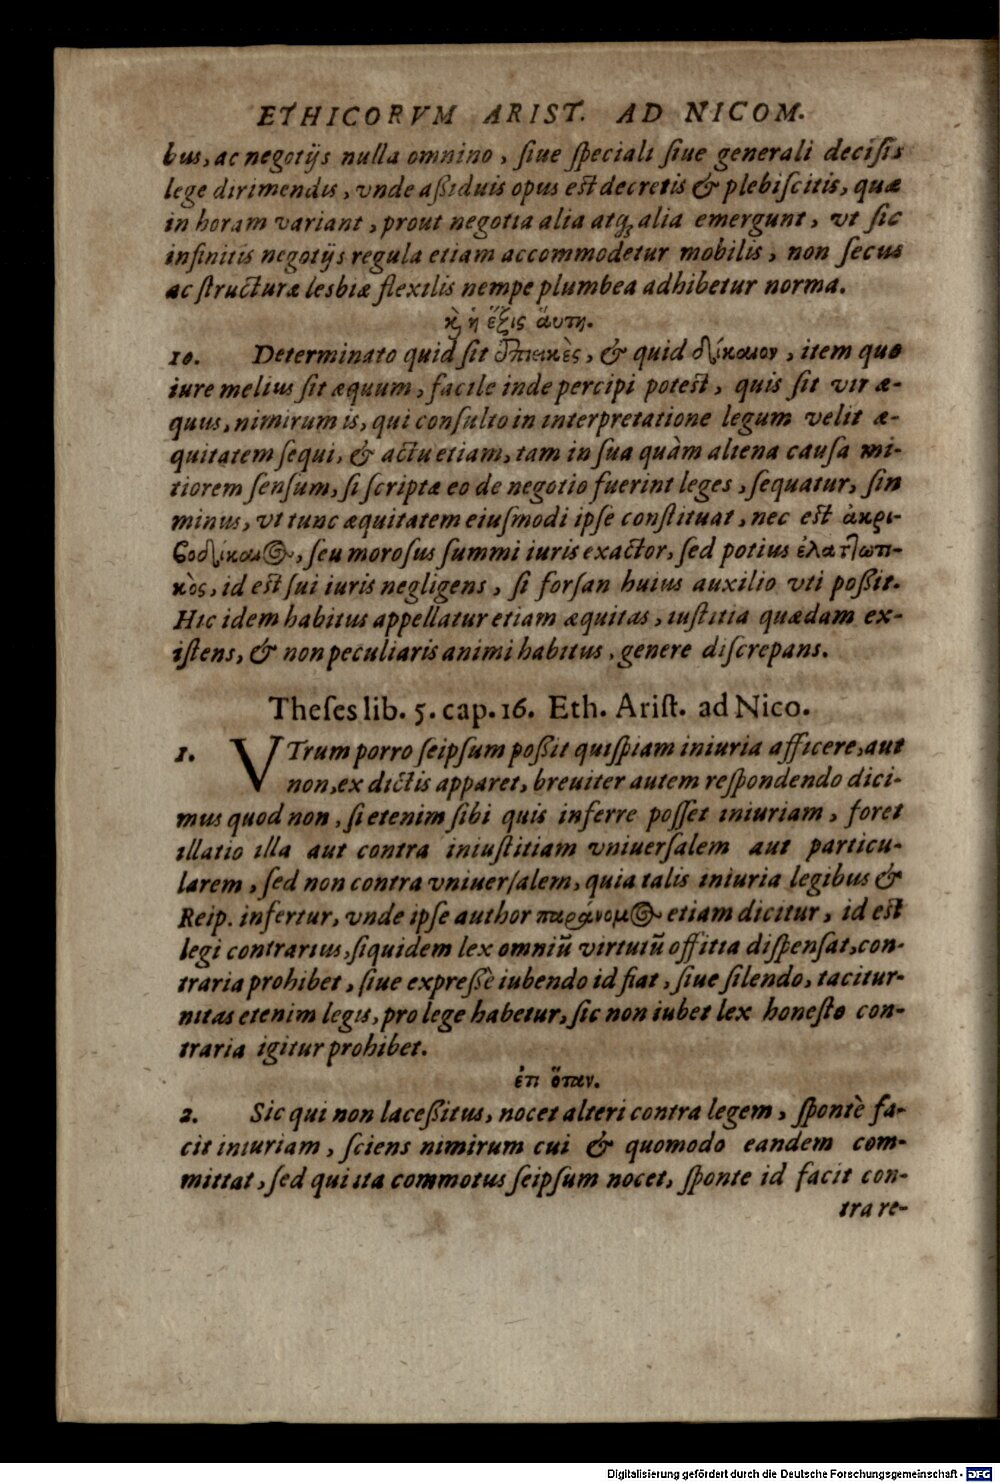 ETHICORVM ARIST. AD NICOM.
bus, ac negotijs nulla omnino, ſiue ſpeciali ſiue generali deciſis
lege dirimendis, vnde aßiduis opus est decretis & plebiſcitis, quæ
in horam variant, prout negotia alia atq; alia emergunt, vt ſic
infinitis negotijs regula etiam accommodetur mobilis, non ſecus
ac ſtructuræ lesbiæ flexilis nempe plumbea adhibetur norma.
κỳ ἡ ἕξις ἅυτη.
10. Determinato quid ſit ἐπιεικὲς, & quid δίκαιον, item quo
iure melius ſit æquum, facile inde percipi potest, quis ſit vir æ-
quus, nimirum is, qui conſulto in interpretatione legum velit æ-
quitatem ſequi, & actu etiam, tam in ſua quàm aliena cauſa mi-
tiorem ſenſum, ſi ſcriptæ eo de negotio fuerint leges, ſequatur, ſin
minus, vt tunc æquitatem eiuſmodi ipſe conſtituat, nec est ἀκρι-
ϐοδίκαιος, ſeu moroſus ſummi iuris exactor, ſed potius ἐλαττωτι-
κὸς, id est ſui iuris negligens, ſi forſan huius auxilio vti poßit.
Hic idem habitus appellatur etiam æquitas, iuſtitia quædam ex-
iſtens, & non peculiaris animi habitus, genere diſcrepans.
Theſes lib. 5. cap. 16. Eth. Ariſt. ad Nico.
1. VTrum porro ſeipſum poßit quiſpiam iniuria afficere, aut
non, ex dictis apparet, breuiter autem reſpondendo dici-
mus quod non, ſi etenim ſibi quis inferre poſſet iniuriam, foret
illatio illa aut contra iniuſtitiam vniuerſalem aut particu-
larem, ſed non contra vniuerſalem, quia talis iniuria legibus &
Reip. infertur, vnde ipſe author παράνομος etiam dicitur, id est
legi contrarius, ſiquidem lex omniũ virtutũ offitia diſpenſat, con-
traria prohibet, ſiue expreßè iubendo id fiat, ſiue ſilendo, tacitur-
nitas etenim legis, pro lege habetur, ſic non iubet lex honeſto con-
traria igitur prohibet.
ἐτι ὅταν.
2. Sic qui non laceßitus, nocet alteri contra legem, ſpontè fa-
cit iniuriam, ſciens nimirum cui & quomodo eandem com-
mittat, ſed qui ita commotus ſeipſum nocet, ſponte id facit con-
tra re-
Digitalisierung gefördert durch die Deutsche Forschungsgemeinschaft - DFG